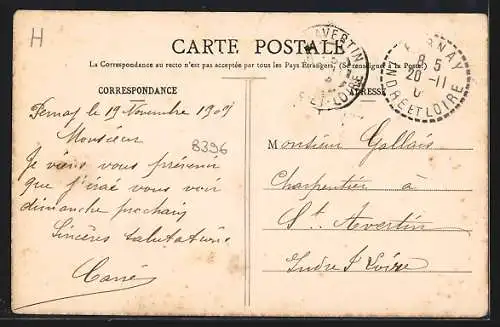 H
CARTE POSTALE
La Correspondance au recto n'est pas acceptée par tous les Pays Étrangers. (Se renseigner à la Poste)
CORRESPONDANCE
ADRESSE
AVERTIN
ET-LOIRE
PERNAY
8 5
20 -11
INDRE ET LOIRE
8396
Pernay le 19 Novembre 1909
Monsieur
Je viens vous prévenir
que j'irai vous voir
dimanche prochain
Sincères salutations
Carré
Monsieur Gallais
Charpentier à
St. Avertin
Indre & Loire